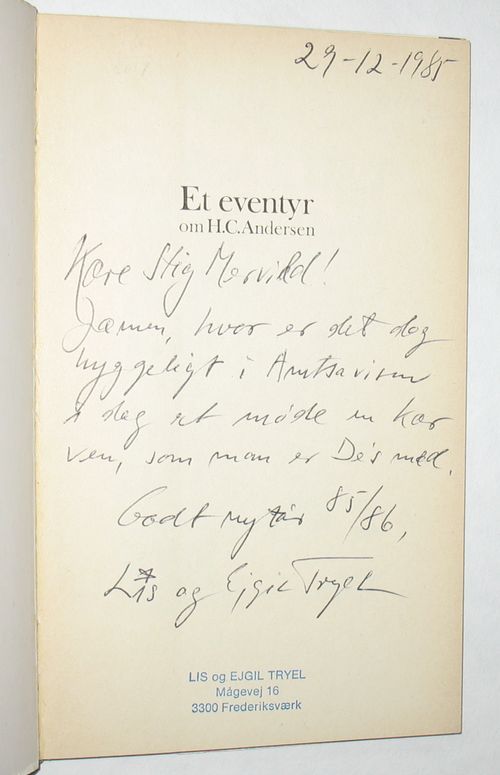 29-12-1985
Et eventyr
om H.C. Andersen
Kære Stig Mervild!
Jamen, hvor er det dog
hyggeligt i Amtsavisen
i dag at møde en kær
ven, som man er De's med.
Godt nytår 85/86,
Lis og Ejgil Tryel
LIS og EJGIL TRYEL
Mågevej 16
3300 Frederiksværk